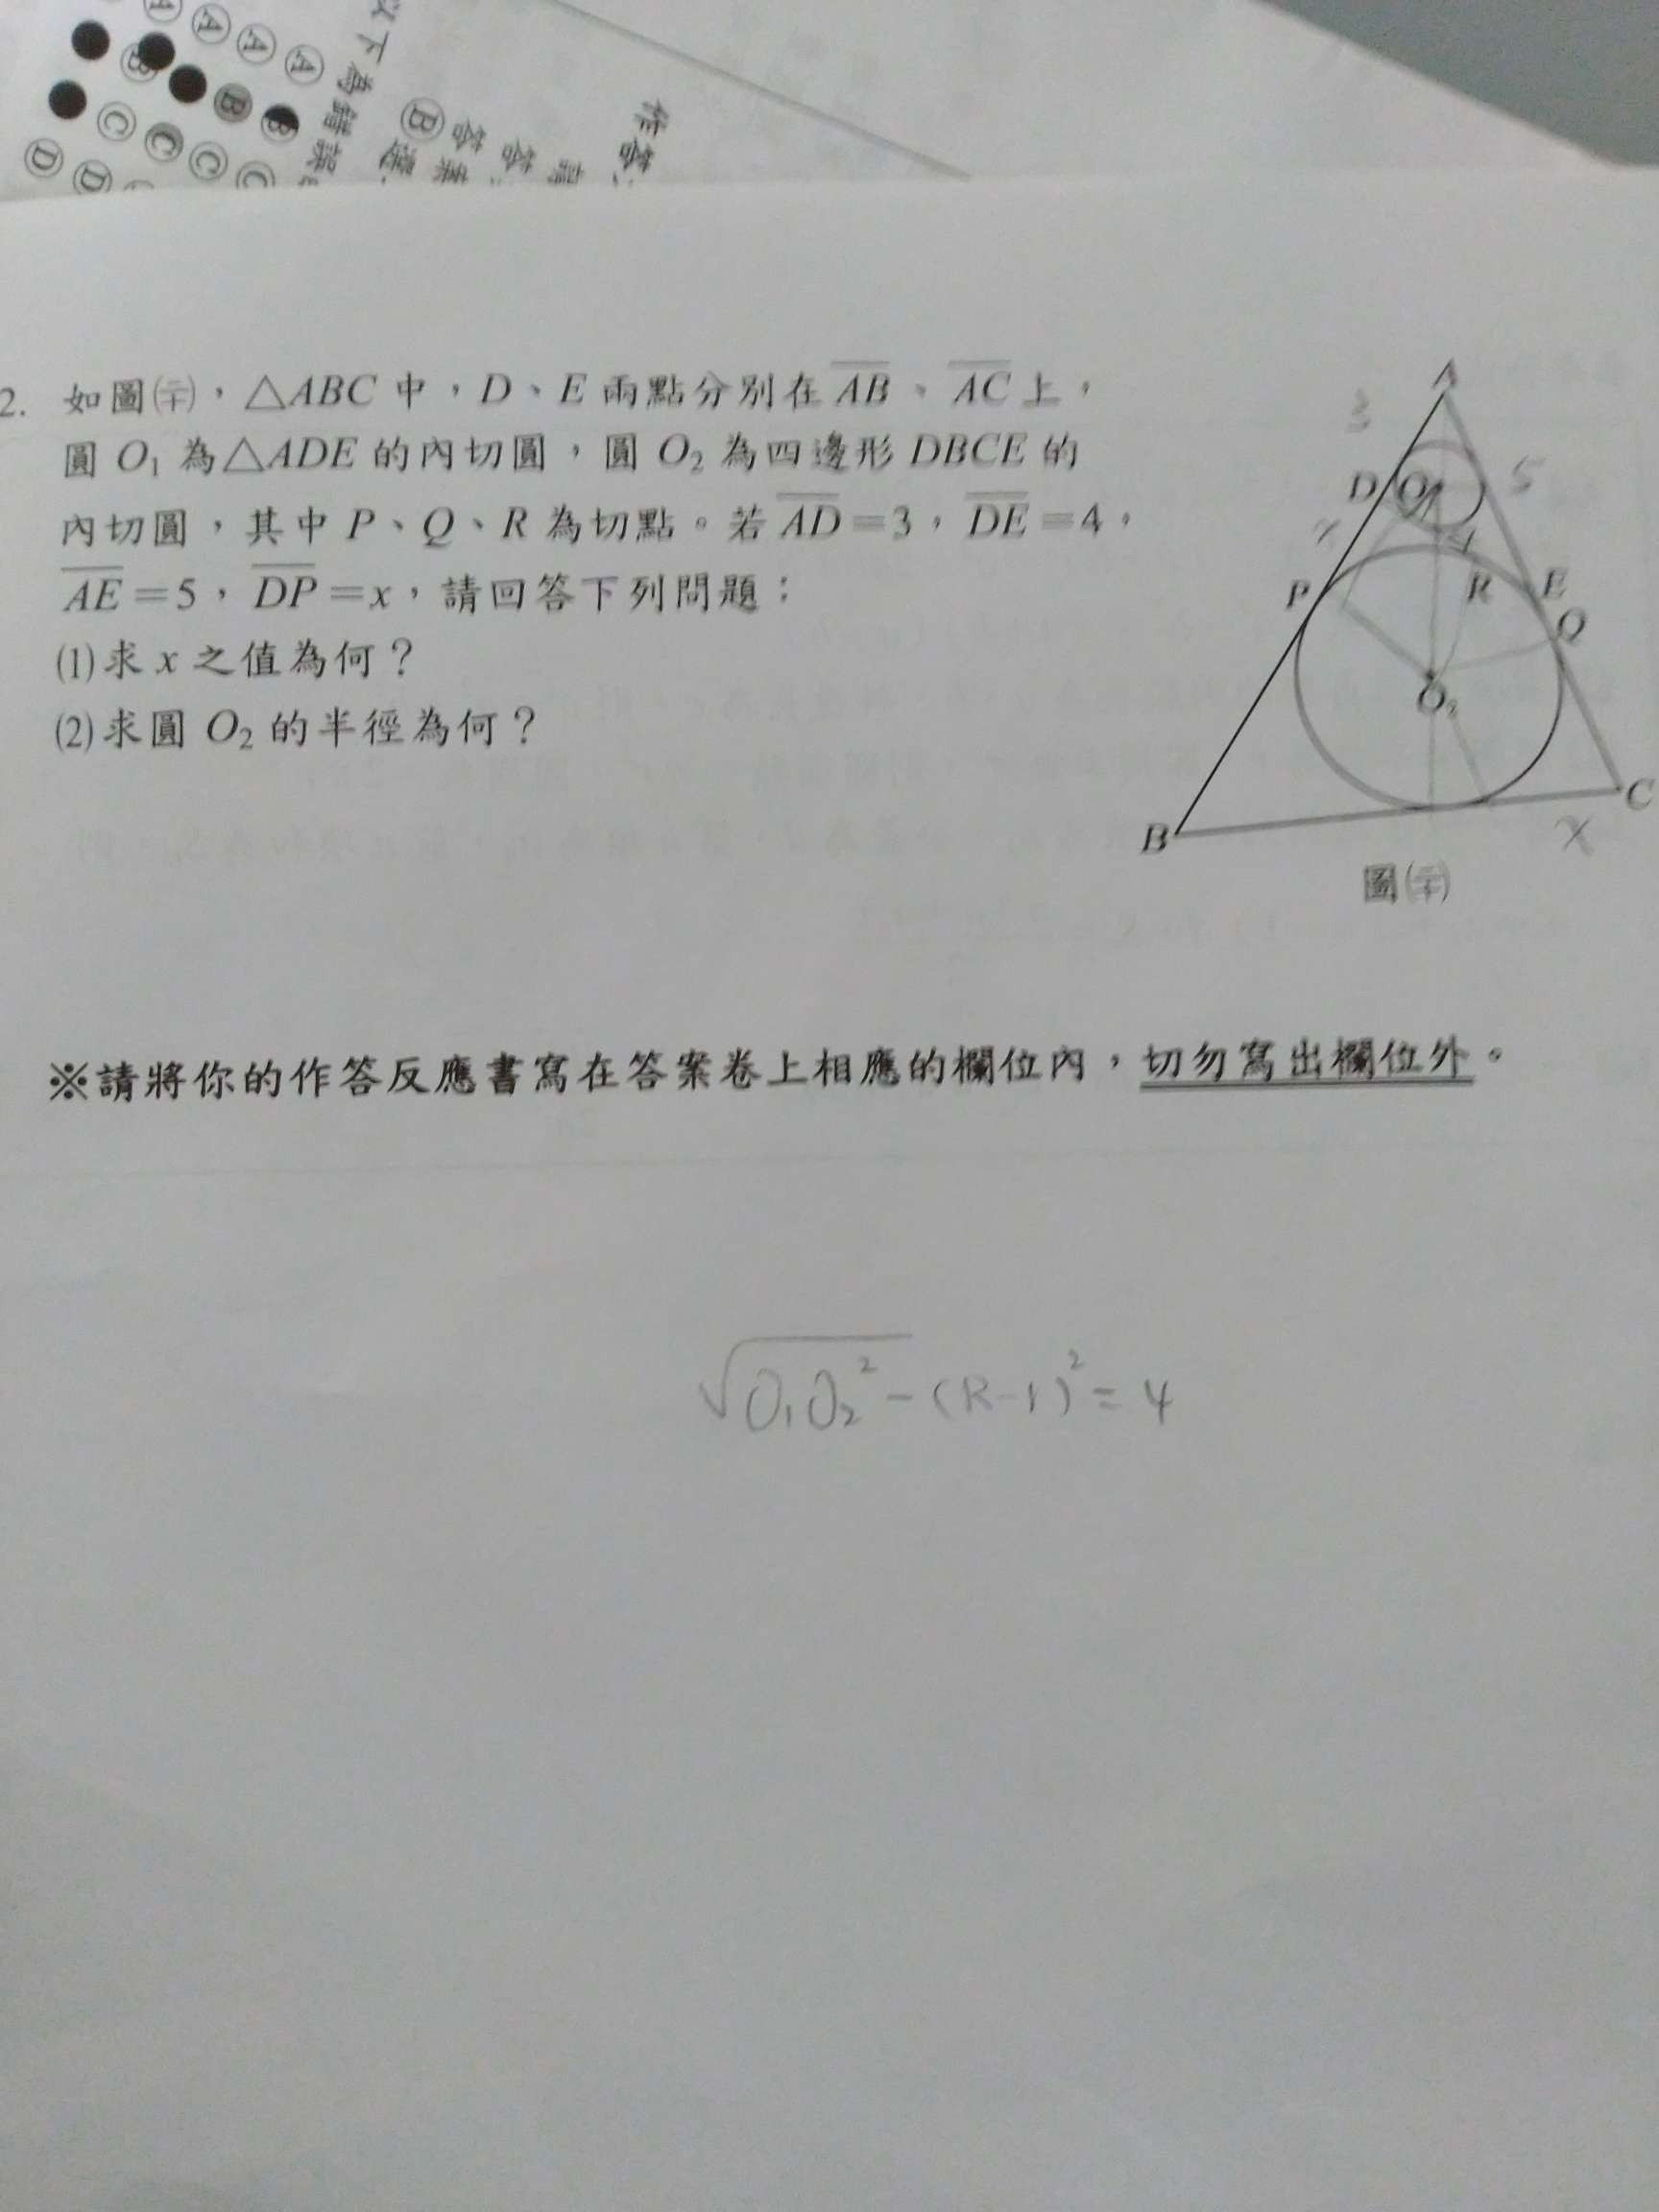 以下為錯誤
A
A
A
A
B
B
B
B
C
C
C
C
D
D
作答
2. 如圖(二十),△ABC 中,D、E 兩點分別在 AB、AC 上,
圓 O₁ 為△ADE 的內切圓,圓 O₂ 為四邊形 DBCE 的
內切圓,其中 P、Q、R 為切點。若 AD=3,DE=4,
AE=5,DP=x,請回答下列問題:
(1)求 x 之值為何?
(2)求圓 O₂ 的半徑為何?
A
3
D
O
5
x
4
P
R
E
Q
O₂
B
C
x
圖(二十)
※請將你的作答反應書寫在答案卷上相應的欄位內,切勿寫出欄位外。
√O₁O₂²-(R-1)²=4